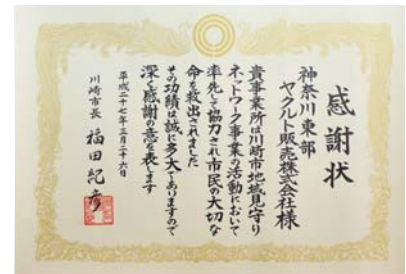 感謝状
神奈川東部
ヤクルト販売株式会社様
貴事業所は川崎市地域見守り
ネットワーク事業の活動において
率先して協力され市民の大切な
命を救出されました
その功績は誠に多大でありますので
深く感謝の意を表します
平成二十七年三月二十六日
川崎市長 福田紀彦